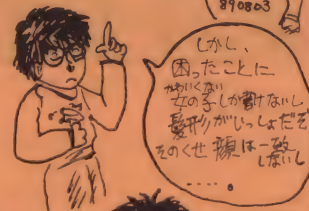 890803
しかし、
困ったことに
かわいくない
女の子しか書けないし
髪形がいっしょだぞ
そのくせ 顔は一致
しないし
・・・・・。